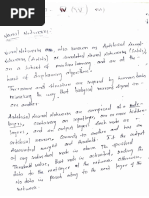 Neural Networks:-
Neural Networks also known as Artificial Neural
Networks (ANNs) or Simulated Neural Networks (SNNs)
is a subset of machine learning and are at the
heart of deep learning algorithms.
Their name and structure are inspired by human brain
mimicking the way that biological neurons signal to
one another.
Artificial Neural Networks are comprised of a node
layers, containing an input layer, one or more hidden
layers, and an output layer. Each node, or
artificial neuron, connects to another and has
an associated weight and threshold. If the output
of any individual node is above the specified
threshold value, that node is activated, sending the
data to the next layer of the network. Otherwise,
no data is passed along to the next layer of the
network.